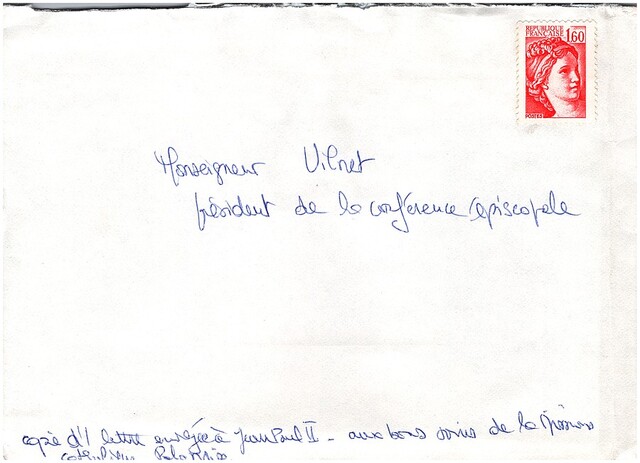 REPUBLIQUE
FRANÇAISE 1,60
POSTES
Monseigneur Vilnet
président de la conférence épiscopale
copie d'1 lettre envoyée à Jean Paul II - aux bons soins de la